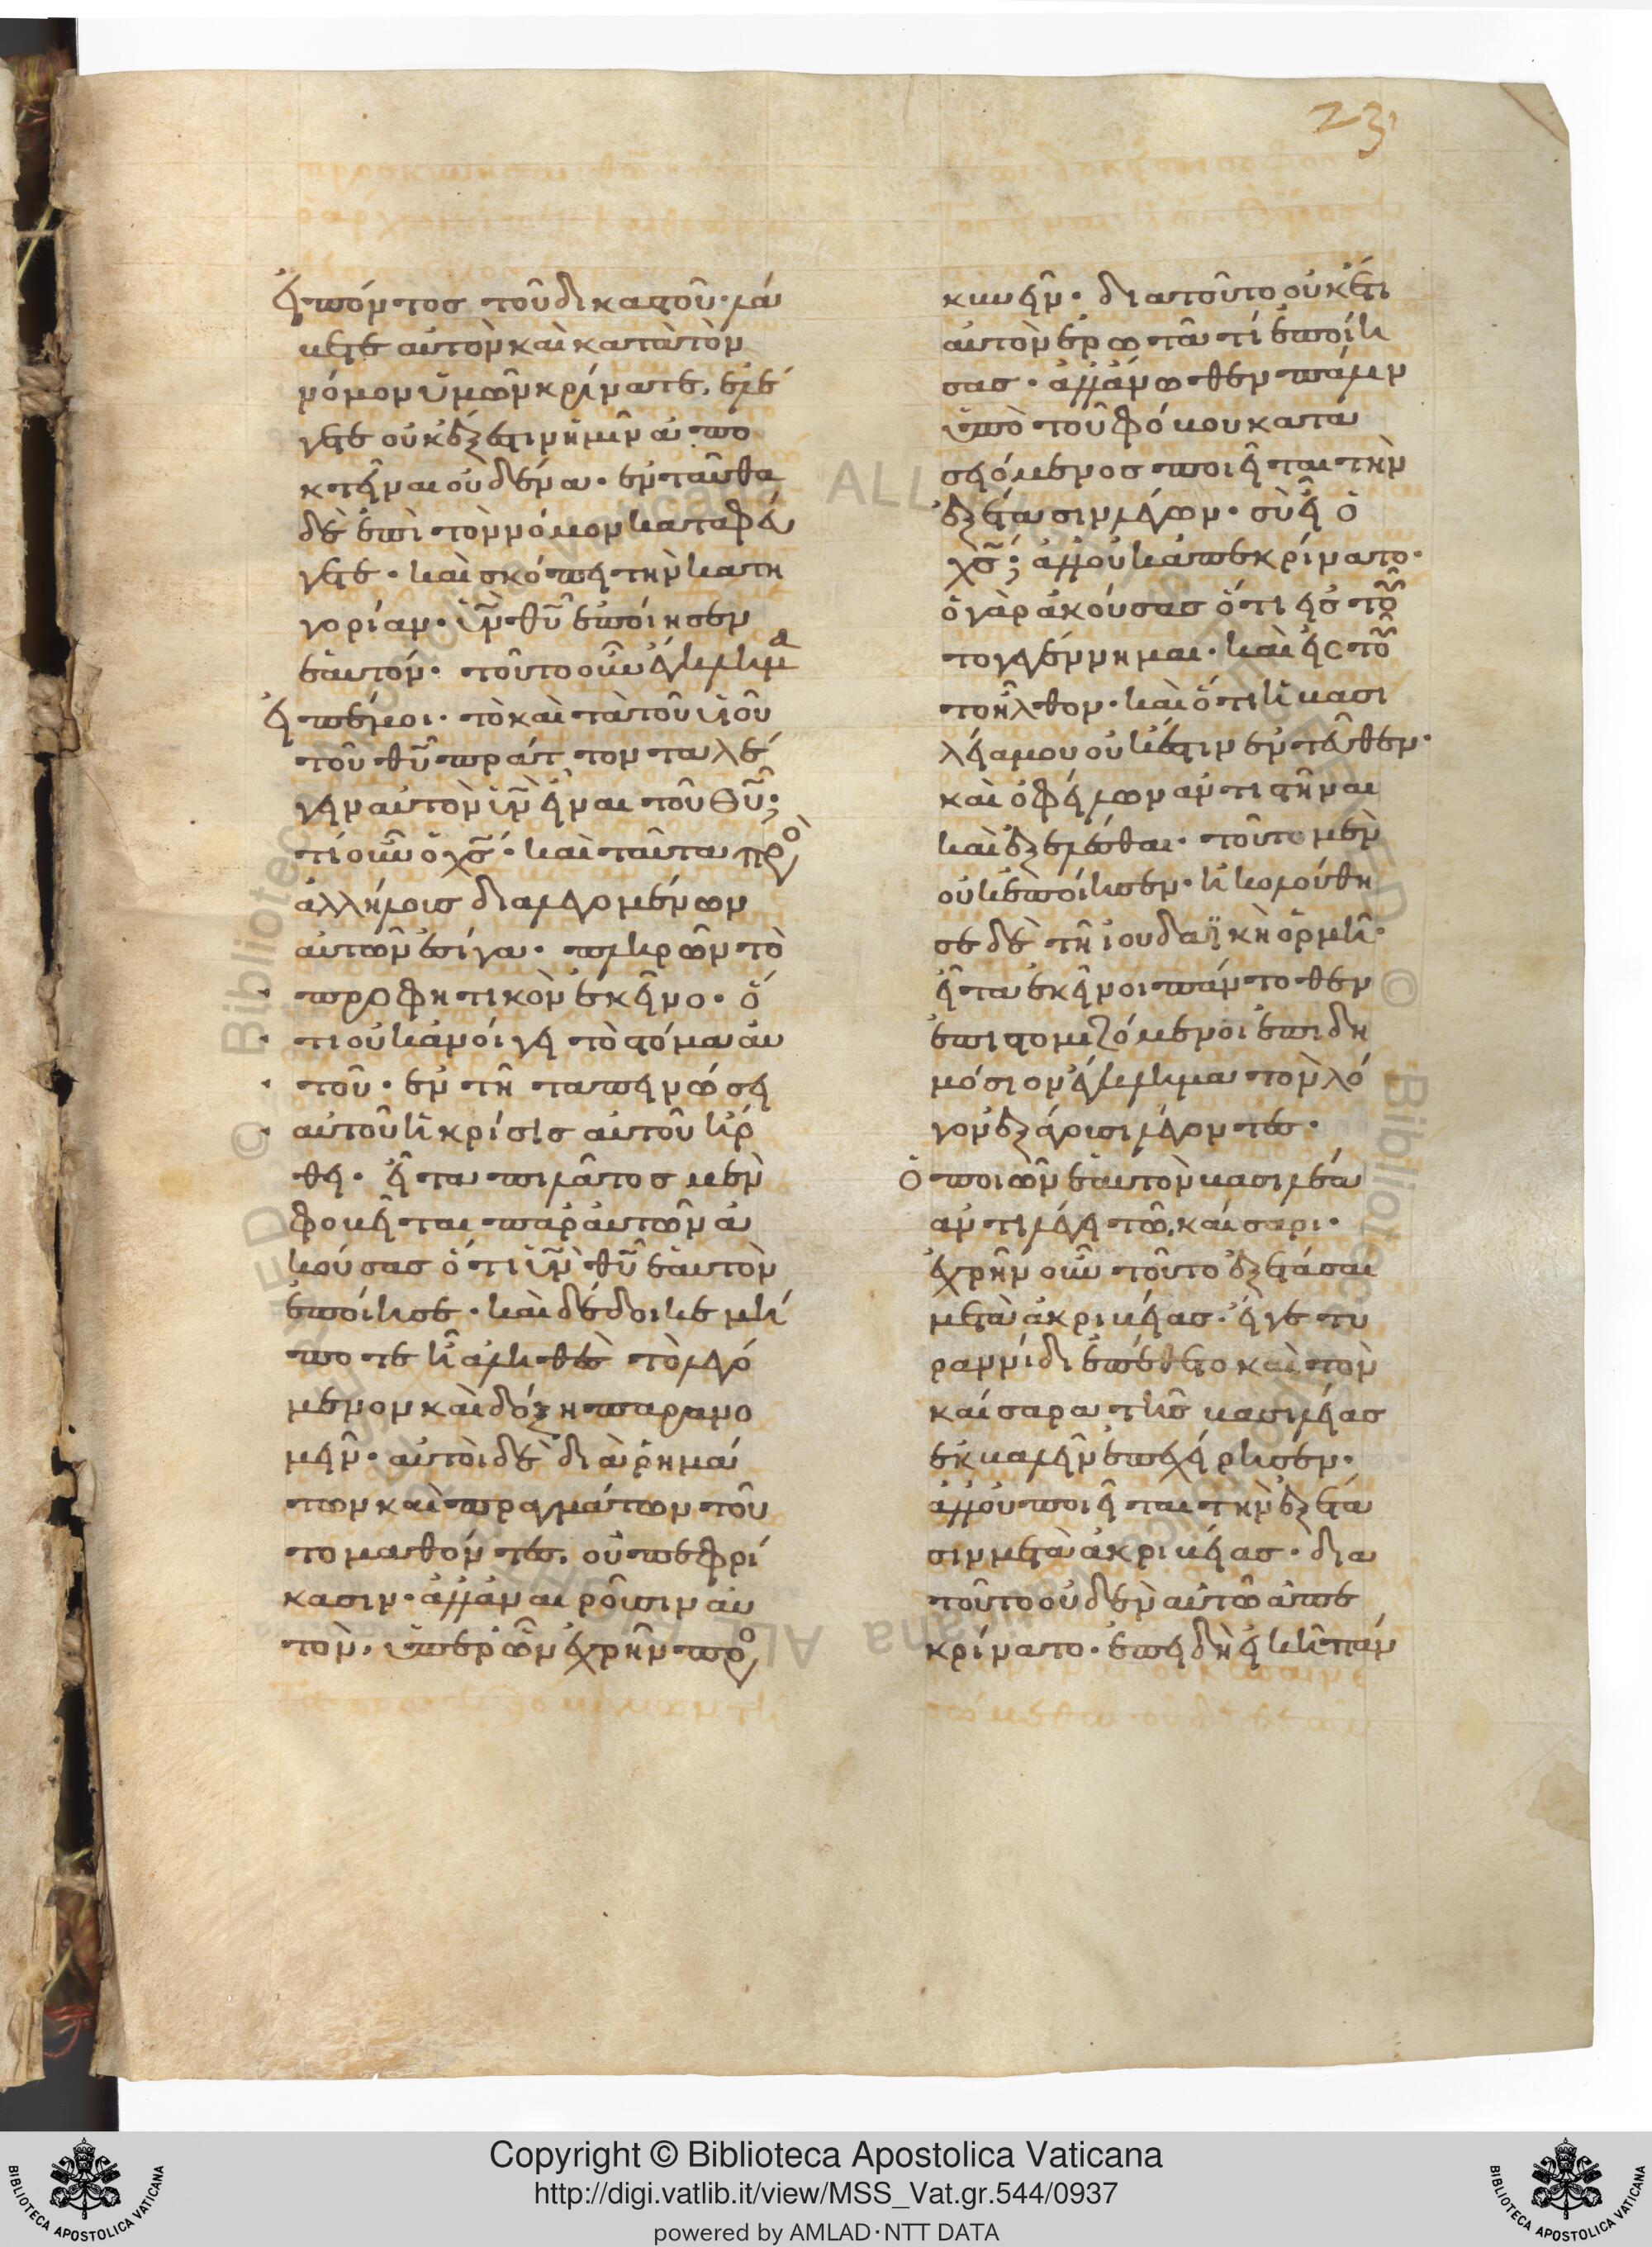 23
εἰπόντος τοῦ δικαστοῦ· λά
βετε αὐτὸν καὶ κατὰ τὸν
νόμον ὑμῶν κρίνατε, ἐλέ
γετε οὐκ ἔξεστιν ἡμῖν ἀπο
κτεῖναι οὐδένα· ἐνταῦθα
δὲ ἐπὶ τὸν νόμον καταφεύ
γετε· καὶ σκόπει τὴν κατη
γορίαν· ὑἱὸν θῦ ἐποίησεν
ἑαυτόν· τοῦτο οὖν ἔγκλημα
εἰπέ μοι· τὸ καὶ τὰ τοῦ υἱοῦ
τοῦ θῦ πράττοντα λέ
γειν αὐτὸν ὑἱὸν εἶναι τοῦ Θῦ;
τί οὖν ὁ χς· καὶ ταῦτα πρὸ
ἀλλήλους διαλεγομένων
αὐτῶν ἐσίγα· πληρῶν τὸ
προφητικὸν ἐκεῖνο· ὅ
τι οὐκ ἀνοίγει τὸ στόμα αὐ
τοῦ· ἐν τῆ ταπεινώσει
αὐτοῦ ἡ κρίσις αὐτοῦ ἤρ
θη· εἶτα πιλᾶτος μὲν
φοβεῖται παρ' αὐτῶν ἀ
κούσας ὅτι ὑἱὸν θῦ ἑαυτὸν
ἐποίησε· καὶ δέδοικε μή
ποτε ἦ ἀληθὲς τὸ λεγό
μενον καὶ δόξη παρανο
μεῖν· αὐτοὶ δὲ διὰ ῥημά
των καὶ πραγμάτων τοῦ
το μαθόντες, οὐ πεφρί
κασιν· ἀλλ' ἀναιροῦσιν αὐ
τὸν, ὑπὲρ ὧν ἐχρῆν προσ
κυνεῖν· διατοῦτο οὐκέτι
αὐτὸν ἐρωτᾶ τί ἐποίη
σας· ἀλλ' ἄνωθεν πάλιν
ὑπὸ τοῦ φόβου κατα
σειόμενος ποιεῖται τὴν
ἐξέτασιν λέγων· σὺ εἶ ὁ
χς; ἀλλ' οὐκ ἀπεκρίνατο·
ὁ γὰρ ἀκούσας ὅτι εἰς τοῦ
το γεγέννημαι· καὶ εἰς τοῦ
το ἦλθον· καὶ ὅτι ἡ βασι
λεία μου οὐκ ἔστιν ἐντεῦθεν·
καὶ ὀφείλων ἀντιστῆναι
καὶ ἐξελέσθαι· τοῦτο μὲν
οὐκ ἐποίησεν· ἠκολούθη
σε δὲ τῆ ἰουδαϊκὴ ὁρμῆ·
εἶτα ἐκεῖνοι πάντοθεν
ἐπιστομιζόμενοι ἐπι δη
μόσιον ἔγκλημα τὸν λό
γον ἐξάγουσι λέγοντες·
ὁ ποιῶν ἑαυτὸν βασιλέα
ἀντιλέγει τῶ καίσαρι·
ἐχρῆν οὖν τοῦτο ἐξετάσαι
μετὰ ἀκριβείας· εἴγε τυ
ραννίδι ἐπέθετο καὶ τὸν
καίσαρα τῆς βασιλείας
ἐκβαλεῖν ἐπεχείρησεν·
ἀλλ' οὐ ποιεῖται τὴν ἐξέτα
σιν μετὰ ἀκριβείας· δια
τοῦτο οὐδὲν αὐτῶ ἀπε
κρίνατο· ἐπειδὴ εἰκῆ πάν
Copyright © Biblioteca Apostolica Vaticana
http://digi.vatlib.it/view/MSS_Vat.gr.544/0937
powered by AMLAD·NTT DATA
BIBLIOTECA APOSTOLICA VATICANA
BIBLIOTECA APOSTOLICA VATICANA